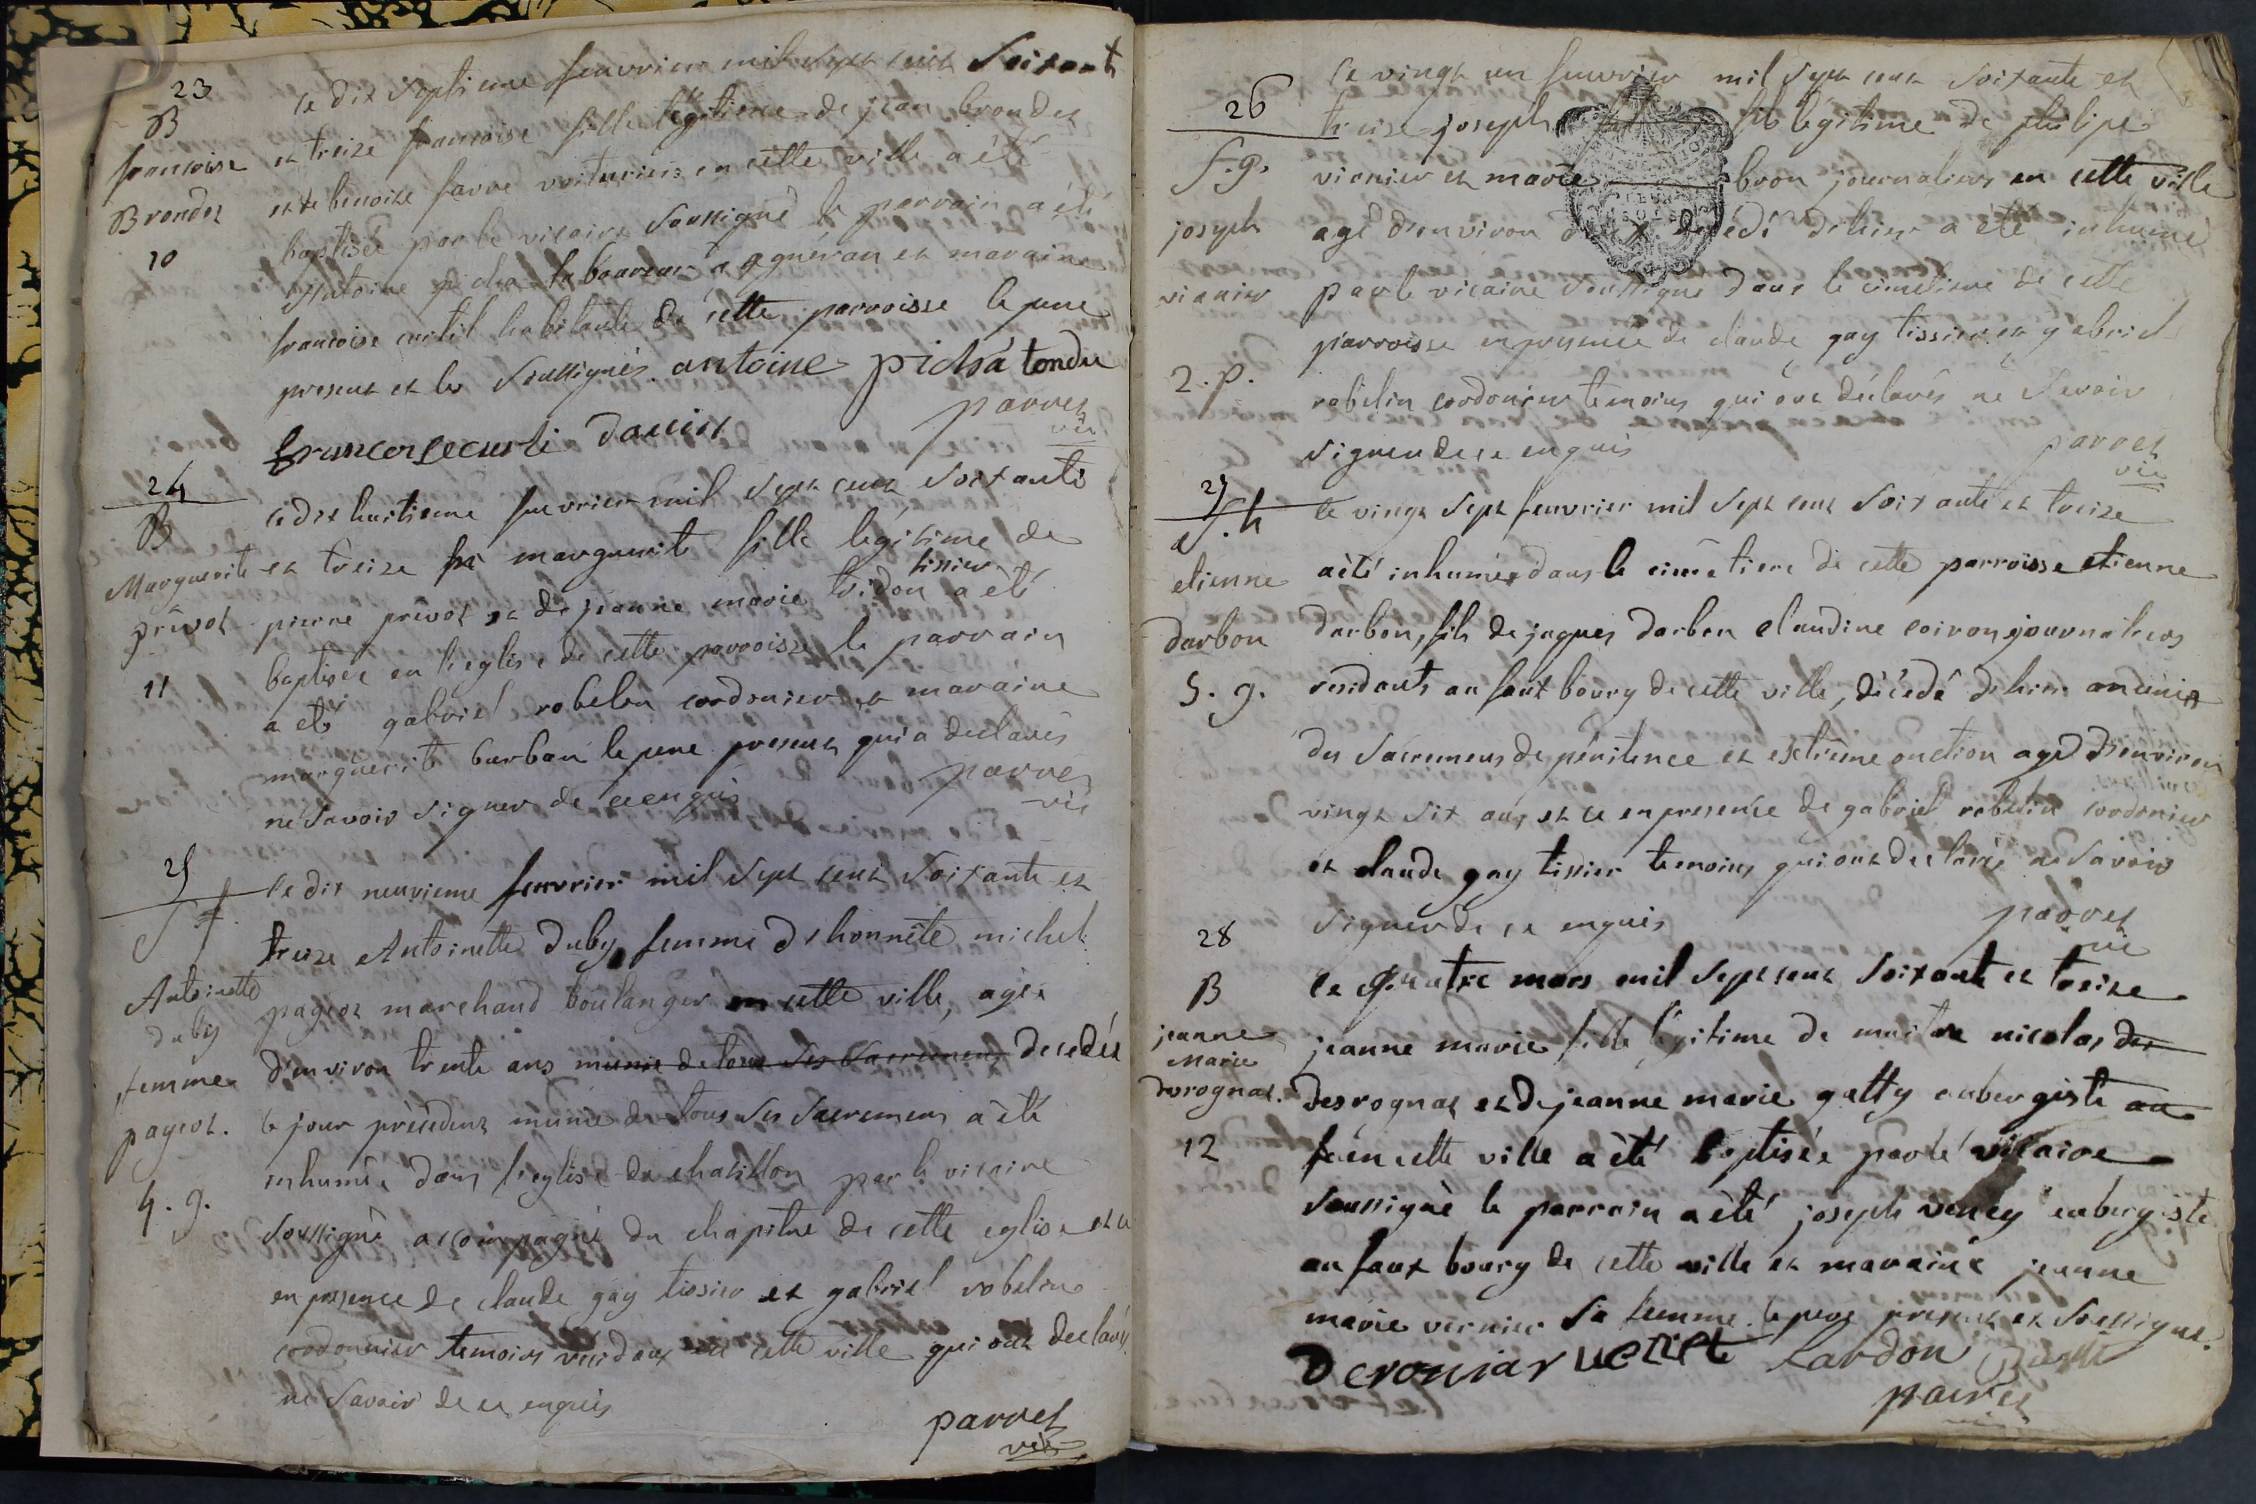 23
B
francoise
Brondes
10
le dix septieme feuvrier mil sept cent Soixante
et treize francoise fille légitime de jean brondes
et de benoite favre voituriers en cette ville a été
baptisée par le vicaire Soussigné le parrain a été
Antoine picha laboureur a et maraine
francoise curtil habitante de cette parroisse le pere
present et les Soussignés antoine pichá tondu
francoise curti parret
vic
24
B
Marguerite
prévot
11
le dix huitieme feuvrier mil Sept cent Soixante
et treize marguerite fille légitime de
tissier
pierre prévot et de jeanne marie tridon a été
baptisée en l'eglise de cette parroisse le parrain
a été gabriel robelin cordonier et maraine
marguerite barban le pere present qui a declarés
ne Savoir Signer de ce enquis parret
vic
25
S f.
Antoinette
duby
femme
pageot.
4. g.
le dix neuvieme feuvrier mil Sept cent Soixante et
treize Antoinette duby femme d'honnête michel
pageot marchand boulanger en cette ville, agée
d'environ trente ans munie de tous Ses Sacremens decedée
le jour précédent munie de tous Ses Sacremens a été
inhumée dans l'eglise de chatillon par le vicaire
Soussigné accompagné du chapitre de cette eglise et ce
en presence de claude gay tissier et gabriel robelin
cordonnier temoins residans en cette ville qui ont declarés
ne Savoir de ce enquis
parret
vic
26
S. g.
joseph
vianier
2. p.
le vingt un feuvrier mil Sept cent Soixante et
treize joseph fils légitime de philipe
vianier et marie bron journaliers en cette ville
agé d'environ decedé d'hier a été inhumé
par le vicaire Soussigné dans le cimetiere de cette
parroisse en presence de claude gay tissier et gabriel
robelin cordonier temoins qui ont déclarés ne Savoir
Signer de ce enquis parret
vic
27
S. h
etienne
darbon
5. g.
le vingt Sept feuvrier mil Sept cent Soixante et treize
a été inhumé dans le cimetiere de cette parroisse etienne
darbon, fils de jaques darbon claudine coiron journaliers
residants au faux bourg de cette ville, décedé d'hier munis
des Sacremens de pénitence et extrême onction agé d'environ
vingt Six ans et ce en presence de gabriel robelin cordonier
et claude gay tissier temoins qui ont declarés ne Savoir
Signer de ce enquis parret
vic
28
B
jeanne
Marie
desrognat.
12
le quatre mars mil Sept cent Soixante et treize
jeanne marie fille légitime de maitre nicolas des
desrognat et de jeanne marie gatty aubergiste au
en cette ville a été baptisée par le vicaire
Soussigné le parrain a été joseph aubergiste
au faux bourg de cette ville et maraine jeanne
marie vernier Sa femme le pere present et Soussigné.
Deroniar Lardon
parret